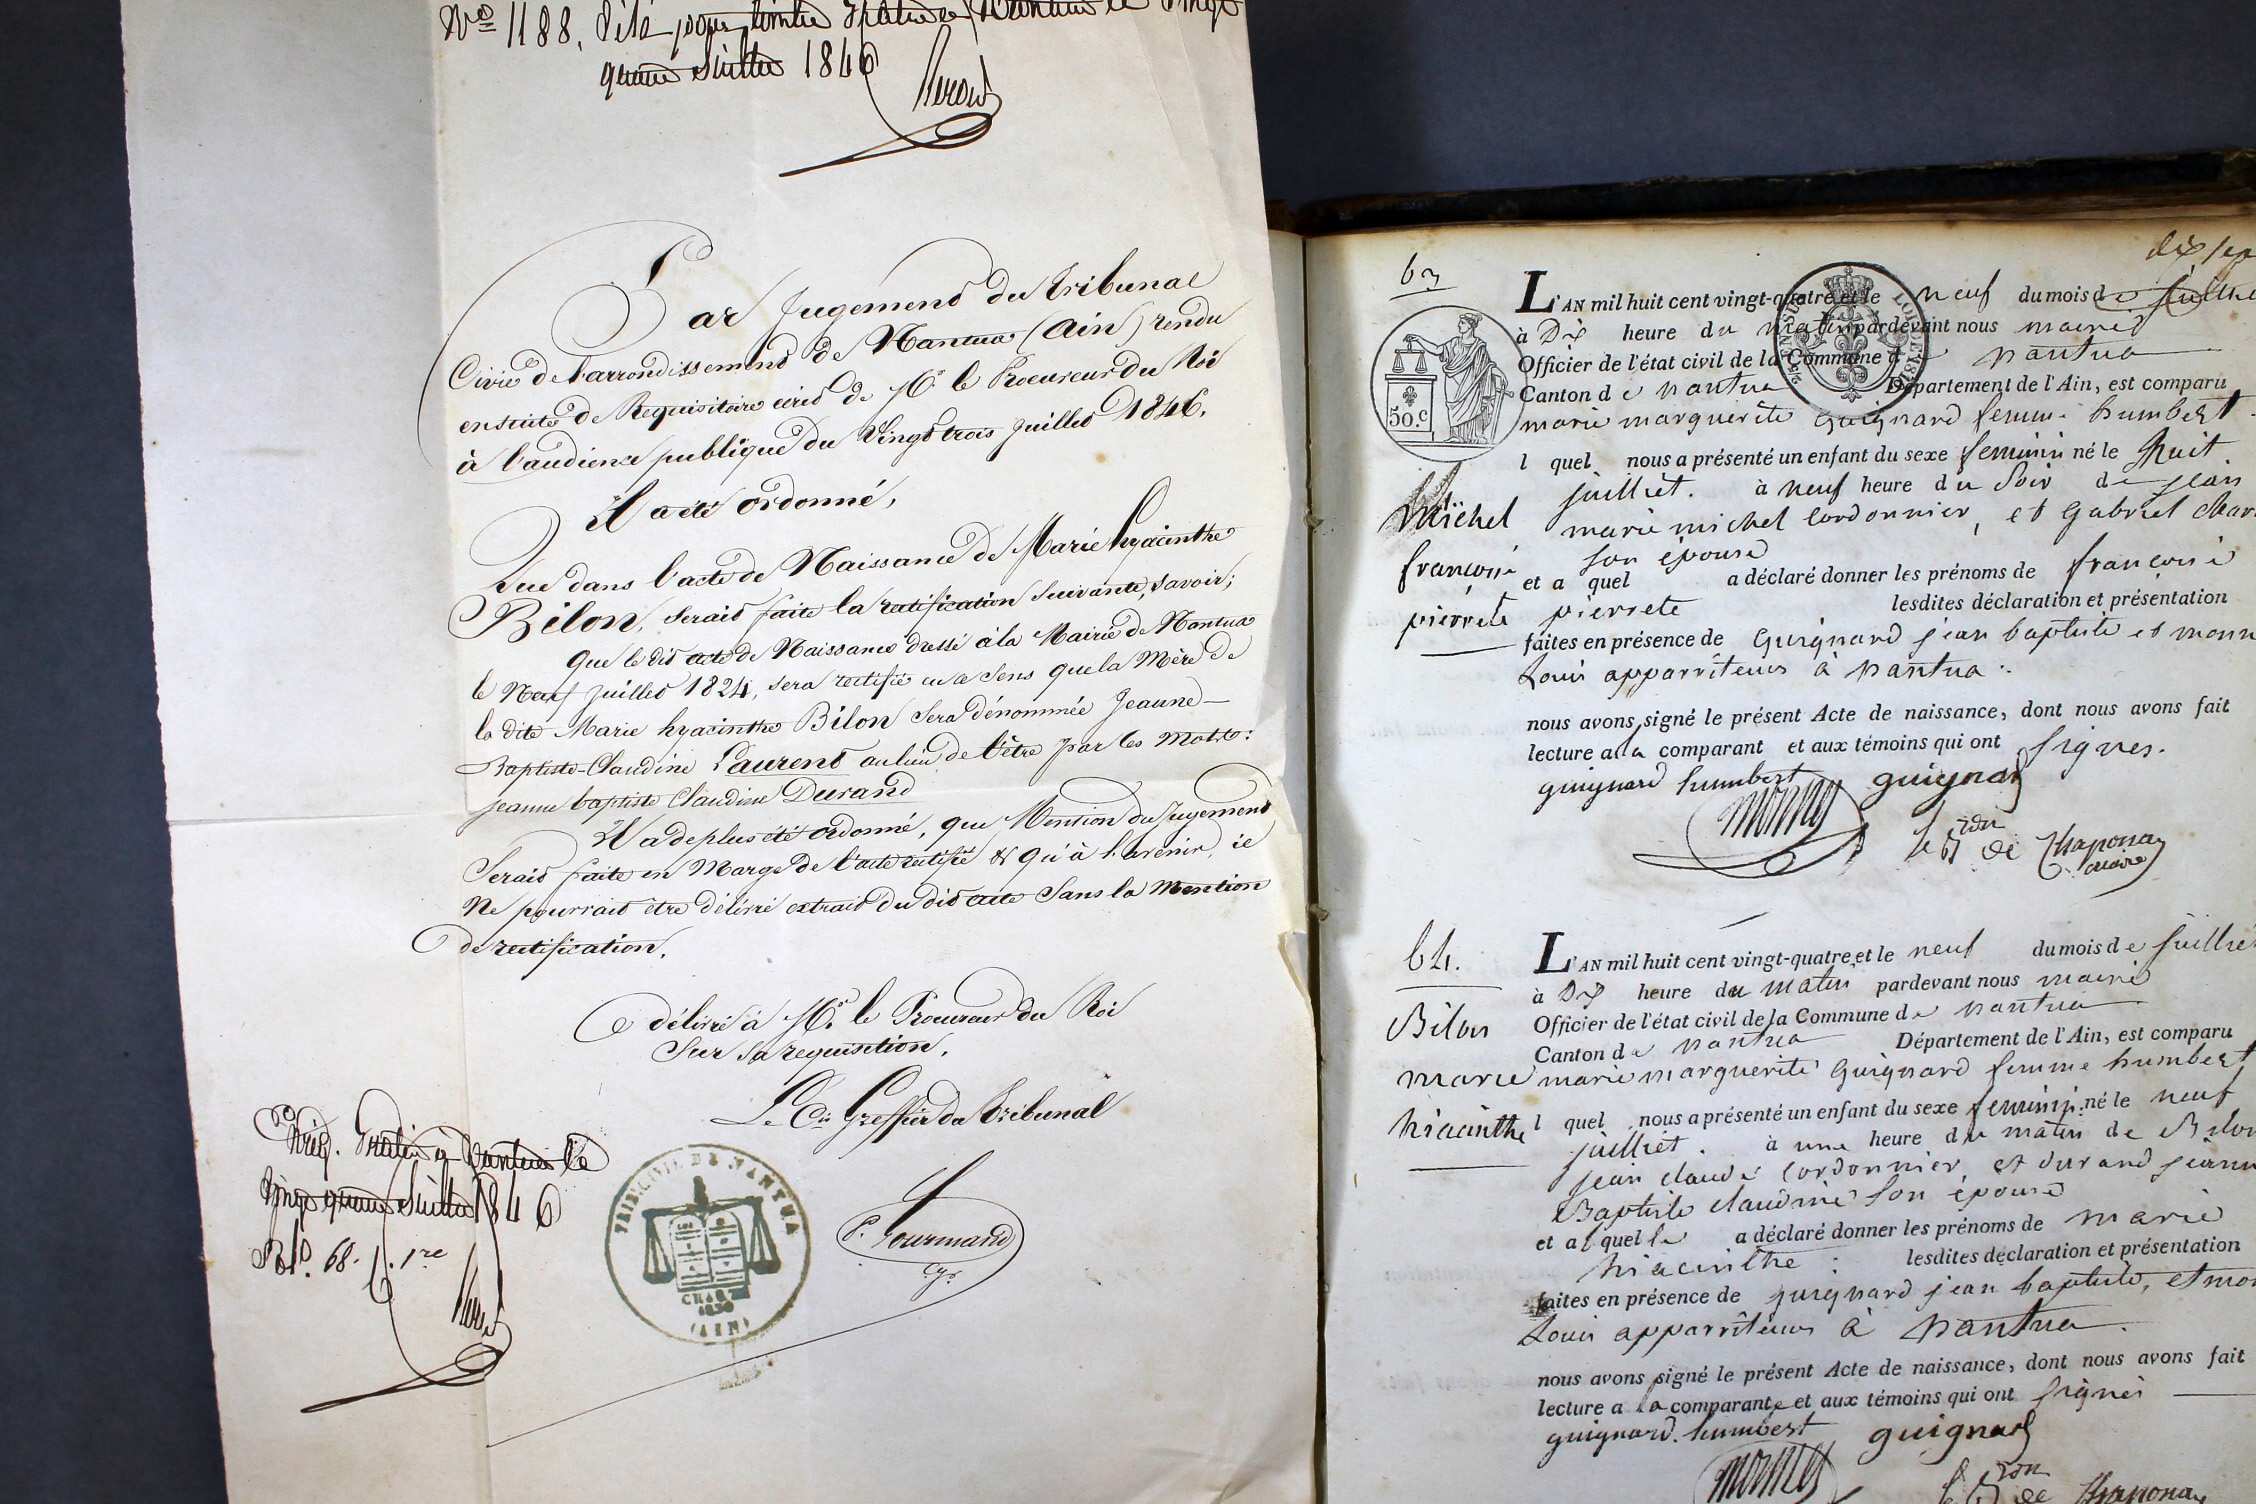 No 1188. Visé pour timbre Gratis à Nantua le Vingt
quatre Juillet 1846
Par Jugement du Tribunal
Civil de l'arrondissement de Nantua (Ain) rendu
ensuite de Requisitoire écrit de Mr. le Procureur du Roi
à l'audience publique du Vingt trois Juillet 1846.
Il a été ordonné,
Que dans l'acte de Naissance de Marie hyacinthe
Bilon, serait faite la rectification suivante, savoir;
Que le dit acte de Naissance dressé à la Mairie de Nantua
le Neuf Juillet 1824, sera rectifié en ce sens que la Mère de
la dite Marie hyacinthe Bilon sera dénommée Jeanne-
Baptiste-Claudine Laurent au lieu de l'être par les Mots:
Jeanne baptiste Claudine Durand
Il a de plus été ordonné, que Mention du Jugement
Serait faite en Marge de l'acte rectifié & qu'à l'avenir, il
Ne pourrait être délivré extrait du dit acte Sans la Mention
de rectification.
délivré à Mr. le Procureur du Roi
Sur sa requisition.
Le Cis Greffier du Tribunal
Enreg. Gratis à Nantua le
Vingt quatre Juillet 1846
68. 1re
TRIBUNAL CIVIL DE NANTUA
CHARTE
1830
(AIN)
P. Gourmand
63
dix sep
L'AN mil huit cent vingt-quatre et le neuf du mois de Juillet
à Dix heure du matin pardevant nous maire
Officier de l'état civil de la Commune de nantua
Canton de nantua Département de l'Ain, est comparu
marie marguerite Guignard femme humbert
50.C
l quel nous a présenté un enfant du sexe feminin né le huit
juillet. à neuf heure du Soir de jean
Michel
marie michel Cordonnier, et Gabriel Char
son épouse
françoise
et a quel a déclaré donner les prénoms de françoise
pierrete
pierrete lesdites déclaration et présentation
faites en présence de Guignard jean baptiste et monn
Louis apparriteurs à nantua.
nous avons signé le présent Acte de naissance, dont nous avons fait
lecture a la comparant et aux témoins qui ont signés.
guignard humbert guignard
monnet
le Bon de Chaponay
maire
64.
L'AN mil huit cent vingt-quatre et le neuf du mois de Juillet
à Dix heure du matin pardevant nous maire
Bilon
Officier de l'état civil de la Commune de nantua
Canton de nantua Département de l'Ain, est comparu
marie
marie marguerite Guignard femme humbert
hiacinthe
l quel nous a présenté un enfant du sexe feminin né le neuf
juillet. à une heure du matin de Bilon
jean claude Cordonnier et durand jeanne
Baptiste claudine son épouse
et a l quelle a déclaré donner les prénoms de marie
hiacinthe: lesdites déclaration et présentation
faites en présence de guignard jean baptiste, et mon
Louis apparriteurs à nantua.
nous avons signé le présent Acte de naissance, dont nous avons fait
lecture a la comparante et aux témoins qui ont signés
guignard humbert guignard
monnet
le Bon de Chaponay